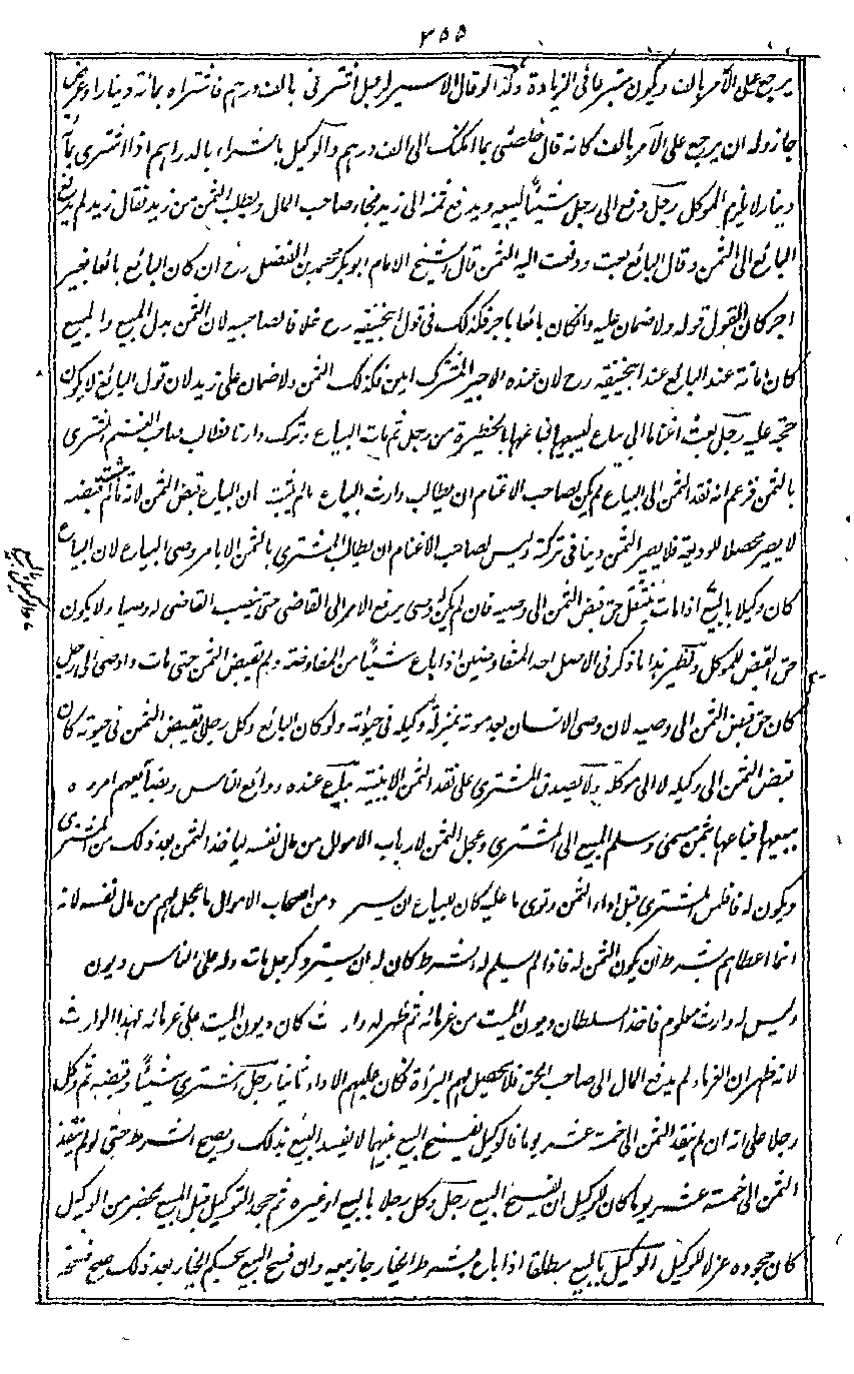 ٣٥٥
يرجع على الآمر بالف ويكون متبرعا فى الزيادة وكذا لو قال الاسير لرجل اشترنى بالف درهم فاشتراه بمائة دينار او عرض
جاز وله ان يرجع على الآمر بالف كانه قال خلصنى بما امكنك الى الف درهم والوكيل بالشراء بالدراهم اذا اشترى بمائة
دينار لا يلزم الموكل رجل دفع الى رجل شيئا ليبيعه ويدفع ثمنه الى زيد فجاء صاحب المال وطلب الثمن من زيد فقال زيد لم يدفع
البائع الى الثمن وقال البائع بعت ودفعت اليه الثمن قال الشيخ الامام ابو بكر محمد بن الفضل رح ان كان البائع بائعا بغير
اجر كان القول قوله ولا ضمان عليه وان كان بائعا باجر فكذلك فى قول ابيحنيفه رح خلافا لصاحبيه لان الثمن بدل المبيع والمبيع
كان امانة عند البائع عند ابيحنيفه رح لان عنده الاجير المشترك امين فكذلك الثمن ولا ضمان على زيد لان قول البائع لا يكون
حجة عليه رجل بعث اغناما الى بياع ليبيعها فباعها بالحظيرة من رجل ثم مات البياع وترك وارثا فطالب صاحب الغنم المشترى
بالثمن فزعم انه نقد الثمن الى البياع لم يكن لصاحب الاغنام ان يطالب وارث البياع مالم يثبت ان البياع قبض الثمن لانه مالم يثبت قبضه
لا يصير محصلا للوديعة فلا يصير الثمن دينا فى تركته وليس لصاحب الاغنام ان يطالب المشترى بالثمن الا بامر وصى البياع لان البياع
كان وكيلا بالبيع اذا مات ينتقل حق قبض الثمن الى وصيه فان لم يكن له وصى يرفع الامر الى القاضى حتى ينصب القاضى له وصيا ولا يكون
حق القبض للموكل ونظير هذا ما ذكر فى الاصل احد المتفاوضين اذا باع شيئا من المفاوضة ولم يقبض الثمن حتى مات واوصى الى رجل
كان حق قبض الثمن الى وصيه لان وصى الانسان بعد موته بمنزلة وكيله فى حيوته ولو كان البائع وكل رجلا بقبض الثمن فى حيوته كان
قبض الثمن الى وكيله لا الى موكله ولا يصدق المشترى على نقد الثمن الا ببينة بياع عنده ودائع الناس وبضائعهم امروه
ببيعها فباعها بثمن مسمى وسلم المبيع الى المشترى وعجل الثمن لارباب الاموال من مال نفسه لياخذ الثمن بعد ذلك من المشترى
ويكون له فافلس المشترى قبل اداء الثمن وتوى ما عليه كان للبياع ان يسترد من اصحاب الاموال ما عجل لهم من مال نفسه لانه
انما اعطاهم بشرط ان يكون الثمن له فاذا لم يسلم له الشرط كان له ان يسترد كرجل مات وله على الناس ديون
وليس له وارث معلوم فاخذ السلطان ديون الميت من غرمائه ثم ظهر له وارث كان ديون الميت على غرمائه لهذا الوارث
لانه ظهر ان الغرماء لم يدفع المال الى صاحب الحق فلا يحصل لهم البرأة فكان عليهم الاداء ثانيا رجل اشترى شيئا وقبضه ثم وكل
رجلا على انه ان لم ينقد الثمن الى خمسة عشر يوما فالوكيل يفسخ البيع بينهما لا يفسد البيع بذلك ويصح الشرط حتى لو لم ينقد
الثمن الى خمسة عشر يوما كان للوكيل ان يفسخ البيع رجل وكل رجلا بالبيع او غيره ثم جحد التوكيل قبل المبيع بمحضر من الوكيل
كان جحوده عزلا للوكيل الوكيل بالبيع مطلقا اذا باع بشرط الخيار جاز بيعه وان فسخ البيع بحكم الخيار بعد ذلك صح فسخه